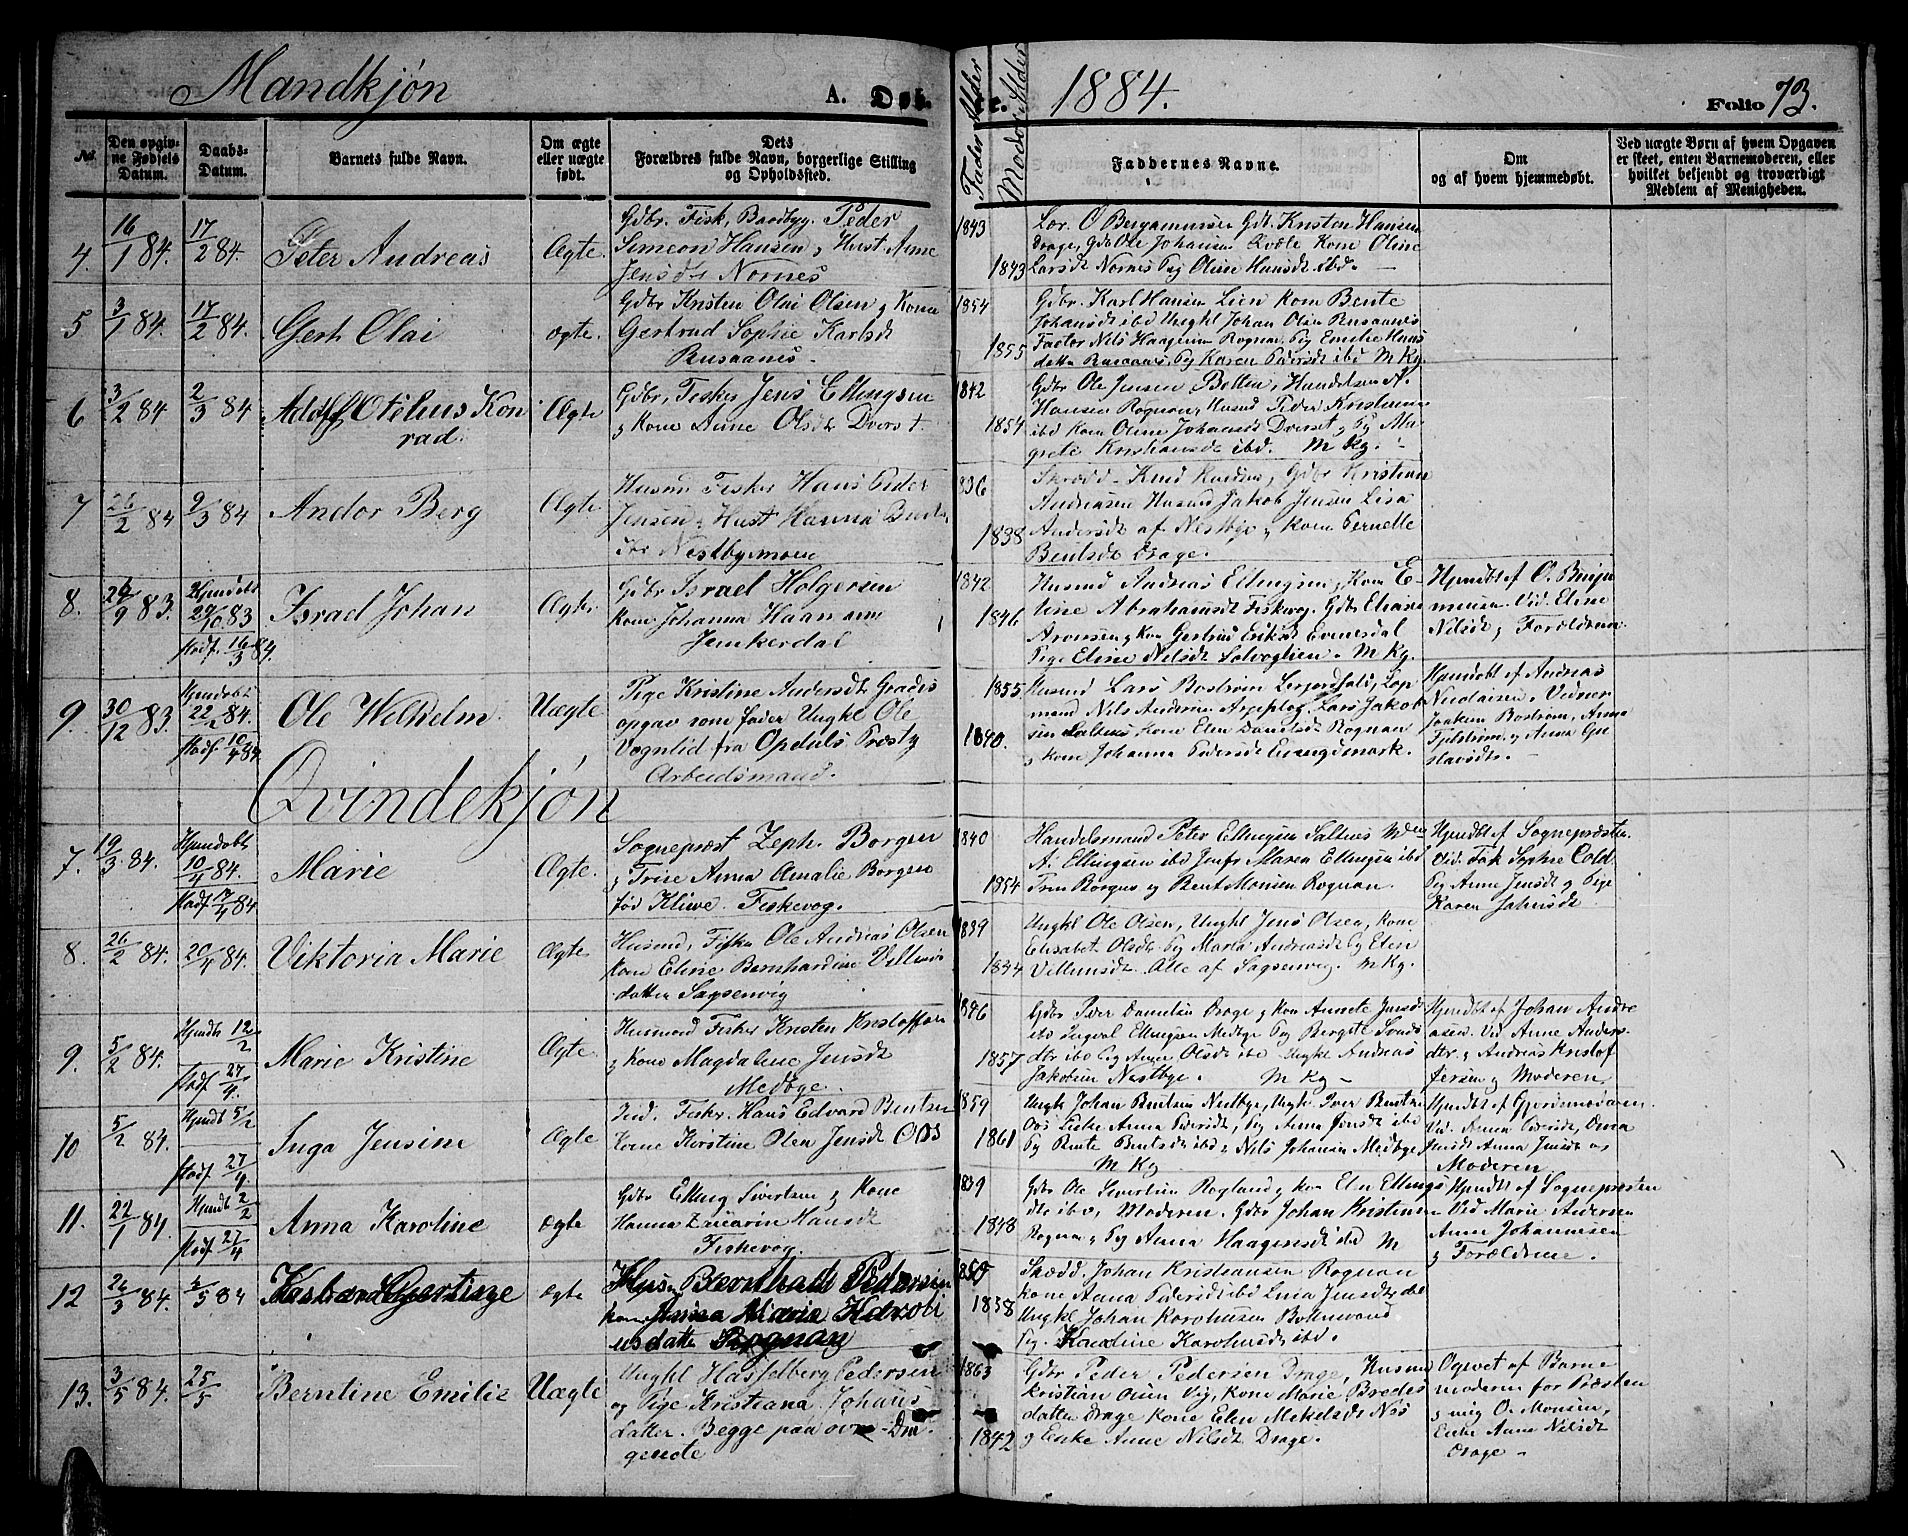 Mandkjön
A. Døb
te.
1884.
Folio 73.
Fader Alder
Moder Alder
No.
Den opgivne Fødsels Datum.
Daabs-Datum.
Barnets fulde Navn.
Om ægte eller uægte født.
Dets Forældres fulde Navn, borgerlige Stilling og Opholdsted.
Faddernes Navne.
Om og af hvem hjemmedøbt.
Ved uægte Børn af hvem Opgaven er skeet, enten Barnemoderen, eller hvilket beljendt og troværdigt Medlem af Menigheden.
4. 16/1 84. 17/2 84. Peter Andreas Ægte.
Gdbr. Fisk, Baadbyg. Peder
Simeon Hansen, Hust Anne
Jensdt Nornes
1843
1843
Lor. O Bergammesen Gdb. Kristen Hansen
Drage, Gdb Ole Johansen Kvæle Kone Oline
Larsdt Nornes Pig Oline Hansdt ibd.
5 3/1 84. 17/2 84. Gert Olai ægte.
Gdbr Kristen Olai Olsen og Kone
Gertrud Sophie Karlsdt
Rusaanes
1854
1855
Gdbr. Karl Hansen Lien kone Bente
Johansdt ibd Ungkl Johan Olsen Rusaanes
Factor Nils Haagensen Rognan Pig Emilie Hans
datter Rusaanes, Pig Karen Pedersdt ibd M Kg.
6 3/2 84 2/3 84 Adolf Otelius Kon
rad. Ægte
Gdbr, Fisker Jens Ellingsen
og Kone Anne Olsdt Dverset
1842
1854
Gdbr Ole Jensen Botten, Handelsm A.
Hansen Rognan, Husmd Peder Kristiansen
ibd kone Oline Johansdt Dverset og Pig Ma
grete Kristiansdt ibd. M Kg.
7 2/2 84 9/3 84 Andor Berg Ægte
Husm Fisker Hans Peder
Jensen og Hust Hanna Bents
dtr Nestbymoen
1836
1838
Skrædd. Knud Knudsen, Gdbr Kristian
Andreasen Husmd Jakob Jensen Lisa
Andersdt af Nestbye og Kone Pernelle
Bentsdt Drage.
8. 29/9 83. Hjemdøbt
29/10 83
Stadf. 16/3 84. Israel Johan Ægte
Gdbr Israel Holgersen
Kone Johanna Haan
Junkerdal
1842
1846
Husmd Andreas Ellingsen, Kone E-
line Abrahamsdt Fiskevog. Gdbr Elias
Aronsen og Kone Gertrud Eriksdt Evenesdal
Pige Eline Nilsdt Solvoglien. M Kg.
Hjemdbt af O. Benja
minsen. Vid. Eline
Nilsdt og Forældrene
9. 30/12 83. Hjemdøbt
22/2 84.
Stadf 10/4 84 Ole Wilhelm Uægte
Pige Kristine Andersdt Graddis
opgav som fader Ungkl Ole
Vognlid fra Opdals Præstg
Arbeidsmand.
1855
1840.
Husmd Lars Bostrøm Lerjordfald, Lap
mand Nils Andersen Arjeplog, Lars Jakob
sen Saltnes Kone Elen Danielsdt Rognan
og Kone Johanna Pedersdt Evangsmark.
Hjemdøbt af Andreas
Nicolaisen. Vidner
Joakim Bostrøm, Anna
Fjelstrøm og Anna Gu
stavsdtr.
Qvindekjön
7. 19/3 84. Hjemdøbt
10/4 84.
Stadf 17/4 84. Marie Ægte.
Sognepræst Zeph. Borgen
og Trine Anna Amalie Borgen
fød Kliwe. Fiskevog.
1840
1854
Handelsmand Peter Ellingsen Saltnes
A. Ellingsen ibd Jomfr Maren Ellingsen ibd
Trin Borgen og Bent Monsen Rognan.
Hjemdbt af Sognepræsten
Vid. Frk Sophie Cold
Pig Anne Jensdt og Pige
Karen Johnsdt
8. 26/2 84. 20/4 84. Viktoria Marie Ægte
Husmd, Fisker Ole Andreas Olsen
kone Eline Bernhardine Villums
datter Saxsenvig
1839
1834
Ungkl Ole Olsen, Ungkl Jens Olsen, kone
Elisabet Olsdt Pig Maria Andreasdt Pig Elen
Villumsdt. Alle af Saxsenvig. M Kg.
9. 5/2 84. Hjemdbt 12/2
Stadf. 27/4. Marie Kristine Ægte
Husmand Fisker Kristen Kristoffersen
og Kone Magdalene Jensdt
Medbye.
1846
1857
Gdbr Peder Danielsen Drage og kone Annete Jensdt
ibd Ingval Ellingsen Medbye Pig Bergete Svens
dtr ibd Pig Anne Olsdt ibd Ungkl Andreas
Jakobsen Nestbye. M Kg
Hjemdbt af Johan Andre
asen. Vid Anne Anders-
dtr. og Andreas Kristof
fersen og Moderen
10 5/2 84. Hjemdbt 5/2
Stadf. 27/4 Inga Jensine Ægte
Fisker. Hans Edvard Bentsen
Kone Kirstine Olea Jensdt Os
1859
1861
Ungk Johan Bentsen Nestbye, Ungk Iver Bentsen
Os Enke Anna Pedersdt, Pig Anna Jensdt ibd
Pig Bente Bentsdt ibd og Nils Johansen Medbye
M Kg
Hjemdbt af Gjordmoderen
Vid. Anna Pedersdt, Oma
Jensdt Anna Jensdt og
Moderen
11. 22/1 84. Hjemdt 2/2
Stadf 27/4 Anna Karoline ægte
Gdbr Elling Sivertsen og Kone
Hanna Zakarine Hansdt
Fiskevog.
1839
1848
Gdbr Ole Sivertsen Rogland og kone Elen Ellings
dtr ibd, Moderen. Gdbr Johan Kristiansen
Rognan og Pig Anna Haagensdt ibd M
Hjemdbt af Sognepræsten
Vid Marie Andersen
Anne Johannesen
og Forældrene.
12 26/3 84. 4/5 84 ægte
Bernhard Pedersen
kone Anna Maria Karoli
usdatter Rognan
1850
1858
Skrædd. Johan Kristiansen Rognan
kone Anna Pedersdt ibd Lina Jensdt ibd
Ungkl Johan Karolusen Botnvand
Pig. Karoline Karolusdt ibd.
13. 3/5 84. 25/5 Berntine Emilie Uægte
Ungkl Hasselberg Pedersen
og Pige Kristiana Johans
datter. Begge paa øvre Dra-
gende
1863
1842
Gdbr Peder Pedersen Drage, Husmd
Kristian Olsen Vig, Kone Marie Bredes
datter Drage Kone Elen Mekelsdt Nes
og Enke Anne Nilsdt Drage.
Opgivet af Barne
moderen for Præsten
og mig O. Monsen,
Enke Anne Nilsdt
Drage